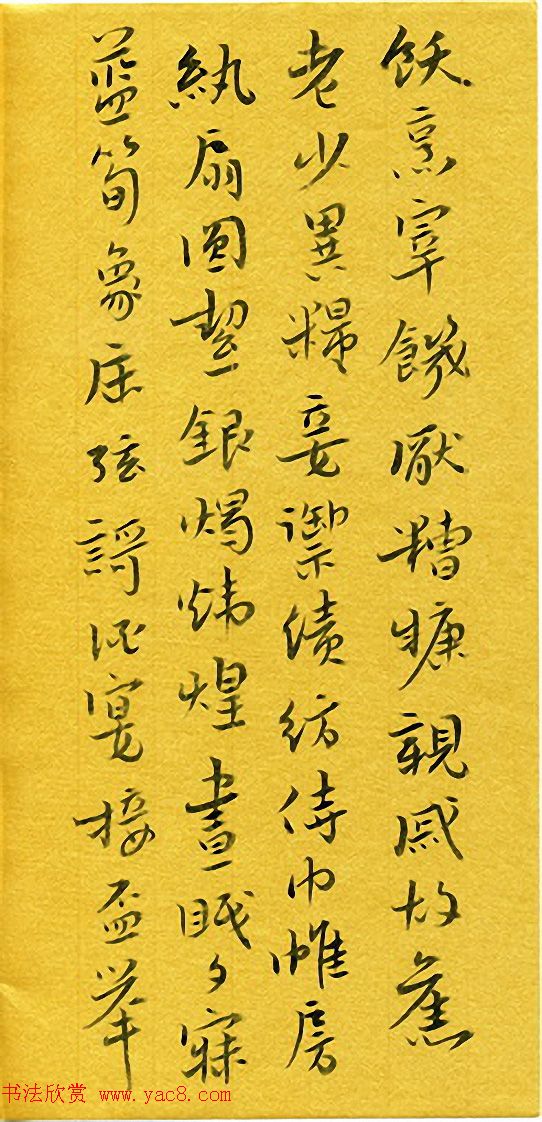 飫烹宰饑厭糟糠親戚故舊
老少異糧妾御績紡侍巾帷房
紈扇圓絜銀燭煒煌晝眠夕寐
藍筍象床弦謌酒宴接盃舉
书法欣赏 www.yac8.com